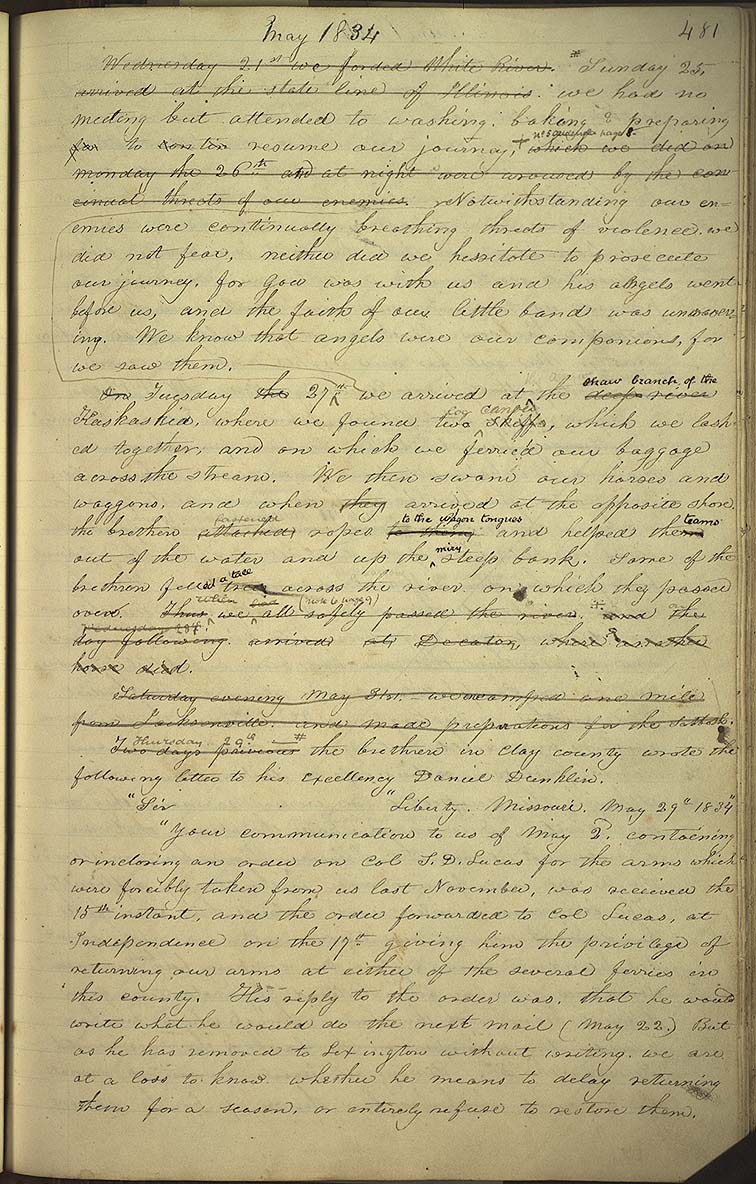 May 1834
481
Wednesday 21st we forded White River. # Sunday 25,
arrived at the state line of Illinois. we had no
meeting but attended to washing, baking & preparing
for to con tin resume our journey, + which we did on
monday the 26th and at night were aroused by the con
tinual threats of our enemies. Notwithstanding our en=
emies were continually breathing threats of violence, we
did not fear, neither did we hesitate to prosecute
our journey, for God was with us and his angels went
before us, and the faith of our little band was unwaver
ing. We know that angels were our companions, for
we saw them.
On Tuesday the 27th we arrived at the deep river okaw branch, of the
Kaskaskia, where we found two skiffs log canoes, which we lash
ed together, and on which we ferried our baggage
across the stream. We then swam our horses and
waggons, and when they arrived at the opposite shore,
the brethren attached fastened ropes to them to the wagon tongues and helped them teams
out of the water and up the miry steep bank. Some of the
brethren felled a tree trees across the river on which they passed
over. Thus When we had all safely passed the river (note 6 page 9) and the
day following Wednesday 28th arrived at Decator, where another
horse died.
Saturday evening May 31st. we encamped one mile
from Jacksonville, and made preparations for the Sabbath.
Two days previous Thursday 29th # the brethren in Clay county wrote the
following letter to his Excellency Daniel Dunklin.
"Sir "Liberty, Missouri, May 29th 1834"
"Your communication to us of May 2d. containing
or inclosing an order on Col S. D. Lucas for the arms which
were forcibly taken from us last November, was received the
15th instant, and the order forwarded to Col Lucas, at
Independence on the 17th giving him the privilege of
returning our arms at either of the several ferries in
this county. His reply to the order was, that he would
write what he would do the next mail (May 22.) But
as he has removed to Lexington without writing, we are
at a loss to know whether he means to delay returning
them for a season, or entirely refuse to restore them.